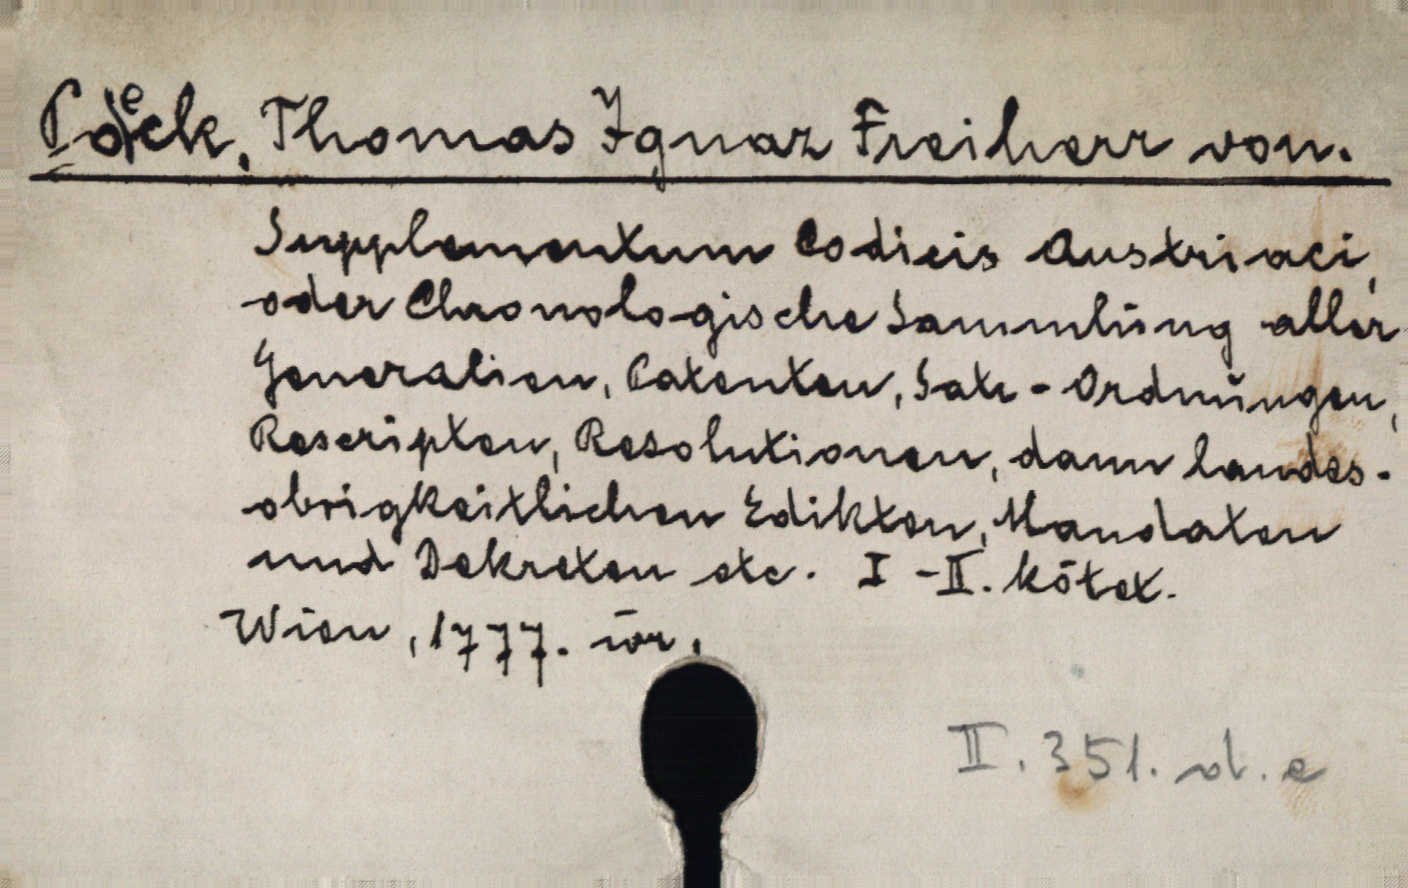 Poeck, Thomas Ignaz Freiherr von.
Supplementum Codicis Austriaci,
oder Chronologische Sammlung aller
Generalien, Patenten, Satz-Ordnungen,
Rescripten, Resolutionen, dann landes-
obrigkeitlichen Edikten, Mandaten
und Dekreten etc. I-II. kötet.
Wien, 1777. ív r.
II. 351. d. e